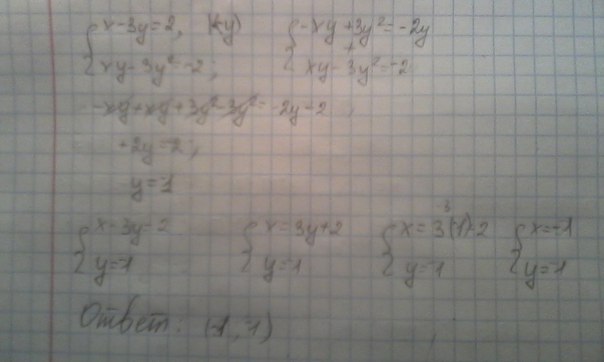 { x-3y=2, |(-y) { -xy+3y²=-2y
{ xy-3y²=-2; { xy-3y²=-2
-xy+xy+3y²-3y²=-2y-2
+2y=-2;
y=-1
{ x-3y=2 { x=3y+2 { x=3·(-1)+2 { x=-1
{ y=-1 { y=-1 { y=-1 { y=-1
Ответ: (-1,-1)